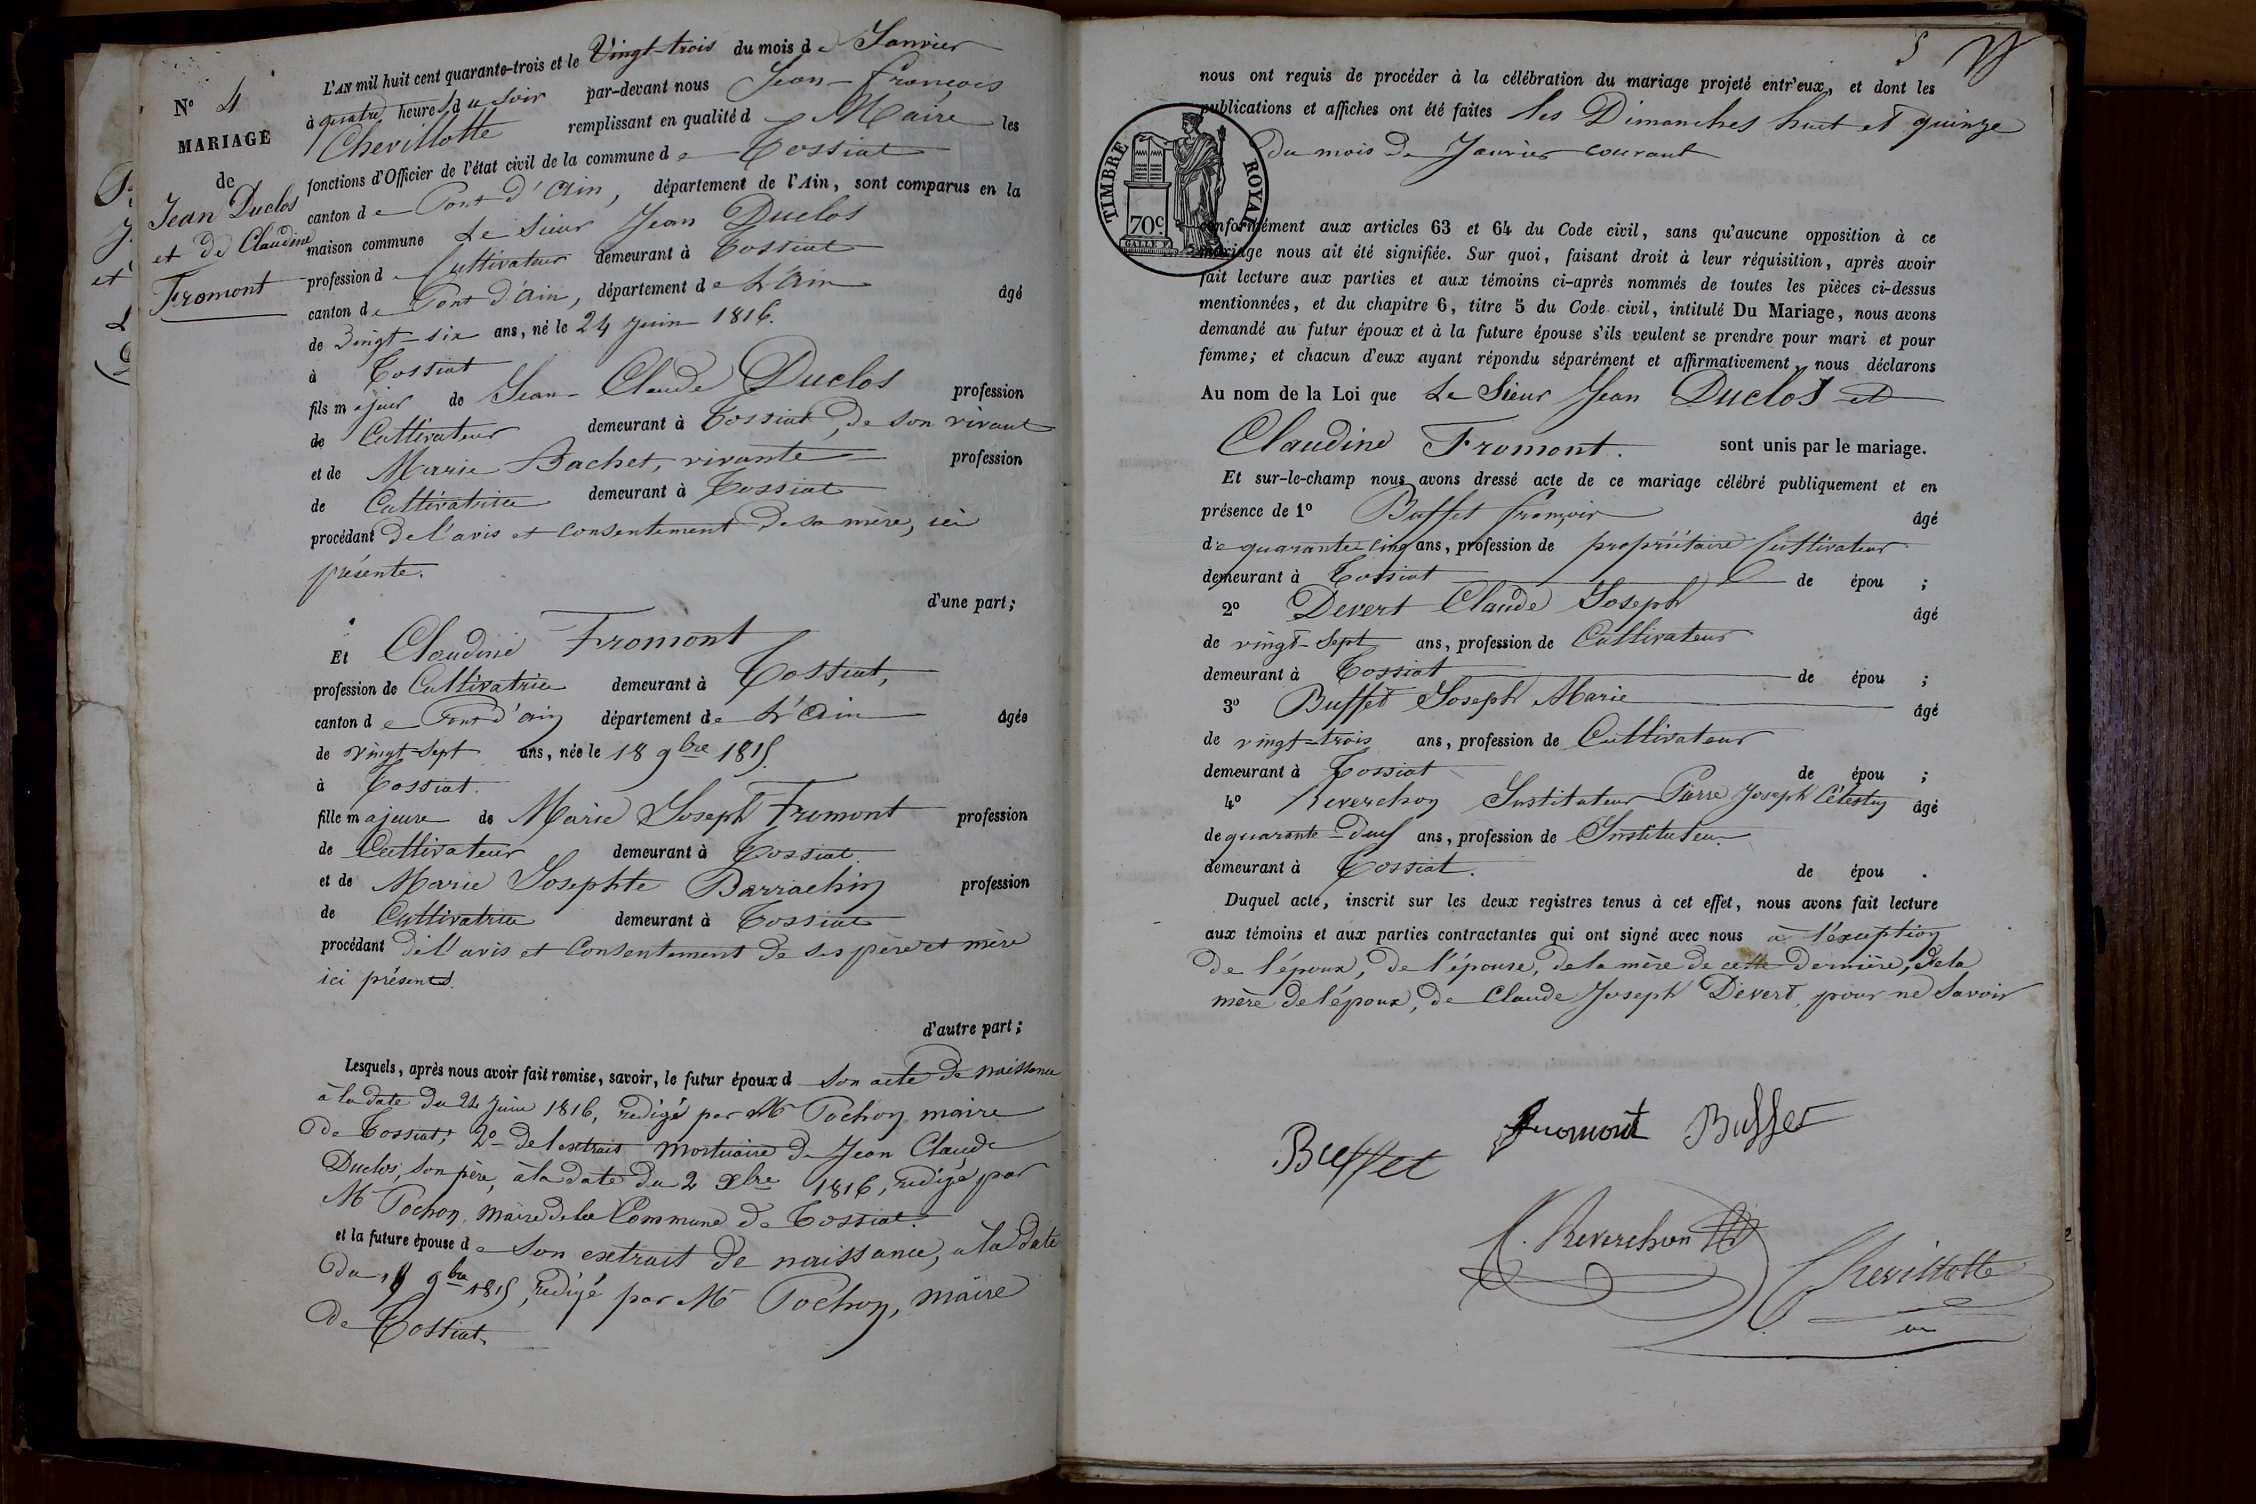 N° 4
MARIAGE
de
Jean Duclos
et de Claudine
Fromont
L'AN mil huit cent quarante-trois et le Vingt-trois du mois de Janvier
à quatre heures du soir par-devant nous Jean-François
Chevillotte remplissant en qualité de Maire les
fonctions d'Officier de l'état civil de la commune de Tossiat
canton de Pont d'Ain, département de l'Ain, sont comparus en la
maison commune Le Sieur Jean Duclos
profession de Cultivateur demeurant à Tossiat
canton de Pont d'Ain, département de L'Ain âgé
de vingt-six ans, né le 24 juin 1816.
à Tossiat
fils majeur de Jean-Claude Duclos profession
de Cultivateur demeurant à Tossiat, de son vivant
et de Marie Bachet, vivante profession
de Cultivatrice demeurant à Tossiat
procédant de l'avis et consentement de sa mère, ici
présente.
d'une part;
Et Claudine Fromont
profession de Cultivatrice demeurant à Tossiat,
canton de Pont d'ain département de L'Ain âgée
de vingt-sept ans, née le 18 9bre 1815.
à Tossiat.
fille majeure de Marie Joseph Fromont profession
de Cultivateur demeurant à Tossiat.
et de Marie Josephte Barrachin profession
de Cultivatrice demeurant à Tossiat
procédant de l'avis et consentement de ses père et mère
ici présents.
d'autre part;
Lesquels, après nous avoir fait remise, savoir, le futur époux d son acte de naissance
à la date du 24 Juin 1816, redigé par Mr Pochon maire
de Tossiat; 2° de l'extrait mortuaire de Jean Claude
Duclos, son père, à la date du 2 Xbre 1816, redigé par
Mr Pochon, maire de la Commune de Tossiat.
et la future épouse de son extrait de naissance, a la date
du 18 9bre 1815, redigé par Mr Pochon, maire
de Tossiat.
5
nous ont requis de procéder à la célébration du mariage projeté entr'eux, et dont les
publications et affiches ont été faites les Dimanches huit et quinze
du mois de Janvier courant
TIMBRE ROYAL
70c
conformément aux articles 63 et 64 du Code civil, sans qu'aucune opposition à ce
mariage nous ait été signifiée. Sur quoi, faisant droit à leur réquisition, après avoir
fait lecture aux parties et aux témoins ci-après nommés de toutes les pièces ci-dessus
mentionnées, et du chapitre 6, titre 5 du Code civil, intitulé Du Mariage, nous avons
demandé au futur époux et à la future épouse s'ils veulent se prendre pour mari et pour
femme; et chacun d'eux ayant répondu séparément et affirmativement, nous déclarons
Au nom de la Loi que Le Sieur Jean Duclos et
Claudine Fromont. sont unis par le mariage.
Et sur-le-champ nous avons dressé acte de ce mariage célébré publiquement et en
présence de 1° Buffet françois âgé
de quarante cinq ans, profession de propriétaire Cultivateur
demeurant à Tossiat de épou ;
2° Devert Claude Joseph âgé
de vingt-sept ans, profession de Cultivateur
demeurant à Tossiat de épou ;
3° Buffet Joseph Marie âgé
de vingt-trois ans, profession de Cultivateur
demeurant à Tossiat de épou ;
4° Reverchon Instituteur Pierre Joseph Célestin âgé
de quarante-deux ans, profession de Instituteur
demeurant à Tossiat. de épou .
Duquel acte, inscrit sur les deux registres tenus à cet effet, nous avons fait lecture
aux témoins et aux parties contractantes qui ont signé avec nous a l'exception
de l'époux, de l'épouse, de la mère de cette dernière, de la
mère de l'époux, de Claude Joseph Devert, pour ne savoir
Buffet Fromont Buffet
Reverchon
Chevillotte